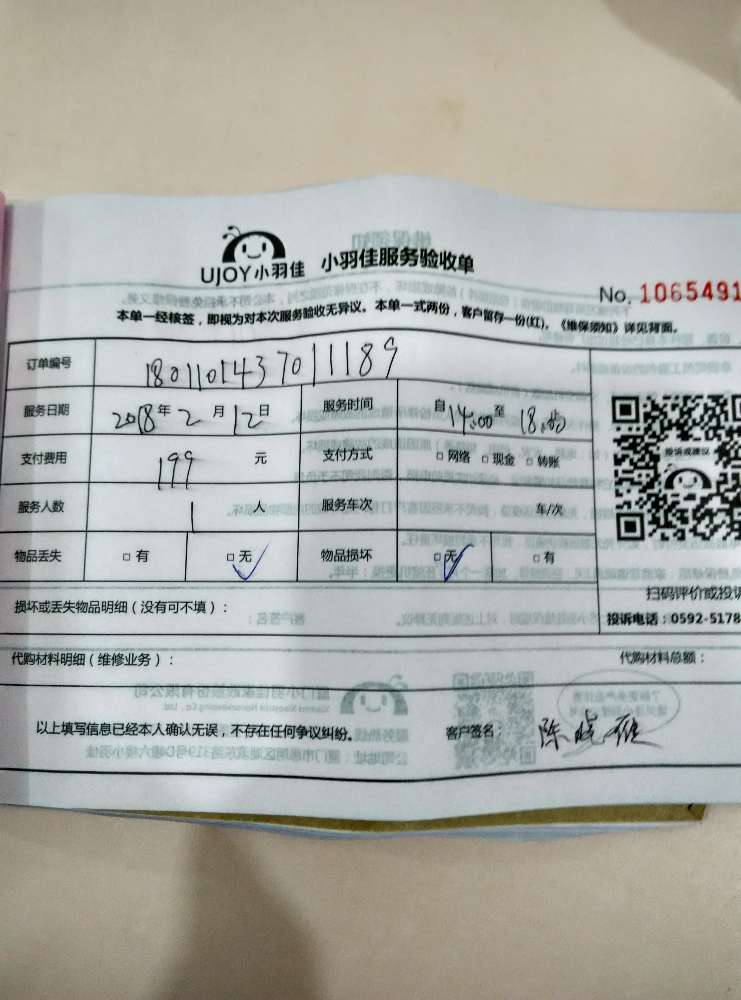 UJOY小羽佳 小羽佳服务验收单
No. 1065491
本单一经核签，即视为对本次服务验收无异议。本单一式两份，客户留存一份(红)。《维保须知》详见背面。
订单编号 1801101437011189
服务日期 2018年2月12日 服务时间 自14:00至18:00
支付费用 199元 支付方式 □网络 □现金 □转账
服务人数 1人 服务车次 车/次
物品丢失 □有 □无 物品损坏 □无 □有
投诉或建议
扫码评价或投诉
损坏或丢失物品明细（没有可不填）：
投诉电话：0592-5178
代购材料明细（维修业务）： 代购材料总额：
以上填写信息已经本人确认无误，不存在任何争议纠纷。 客户签名：陈晓